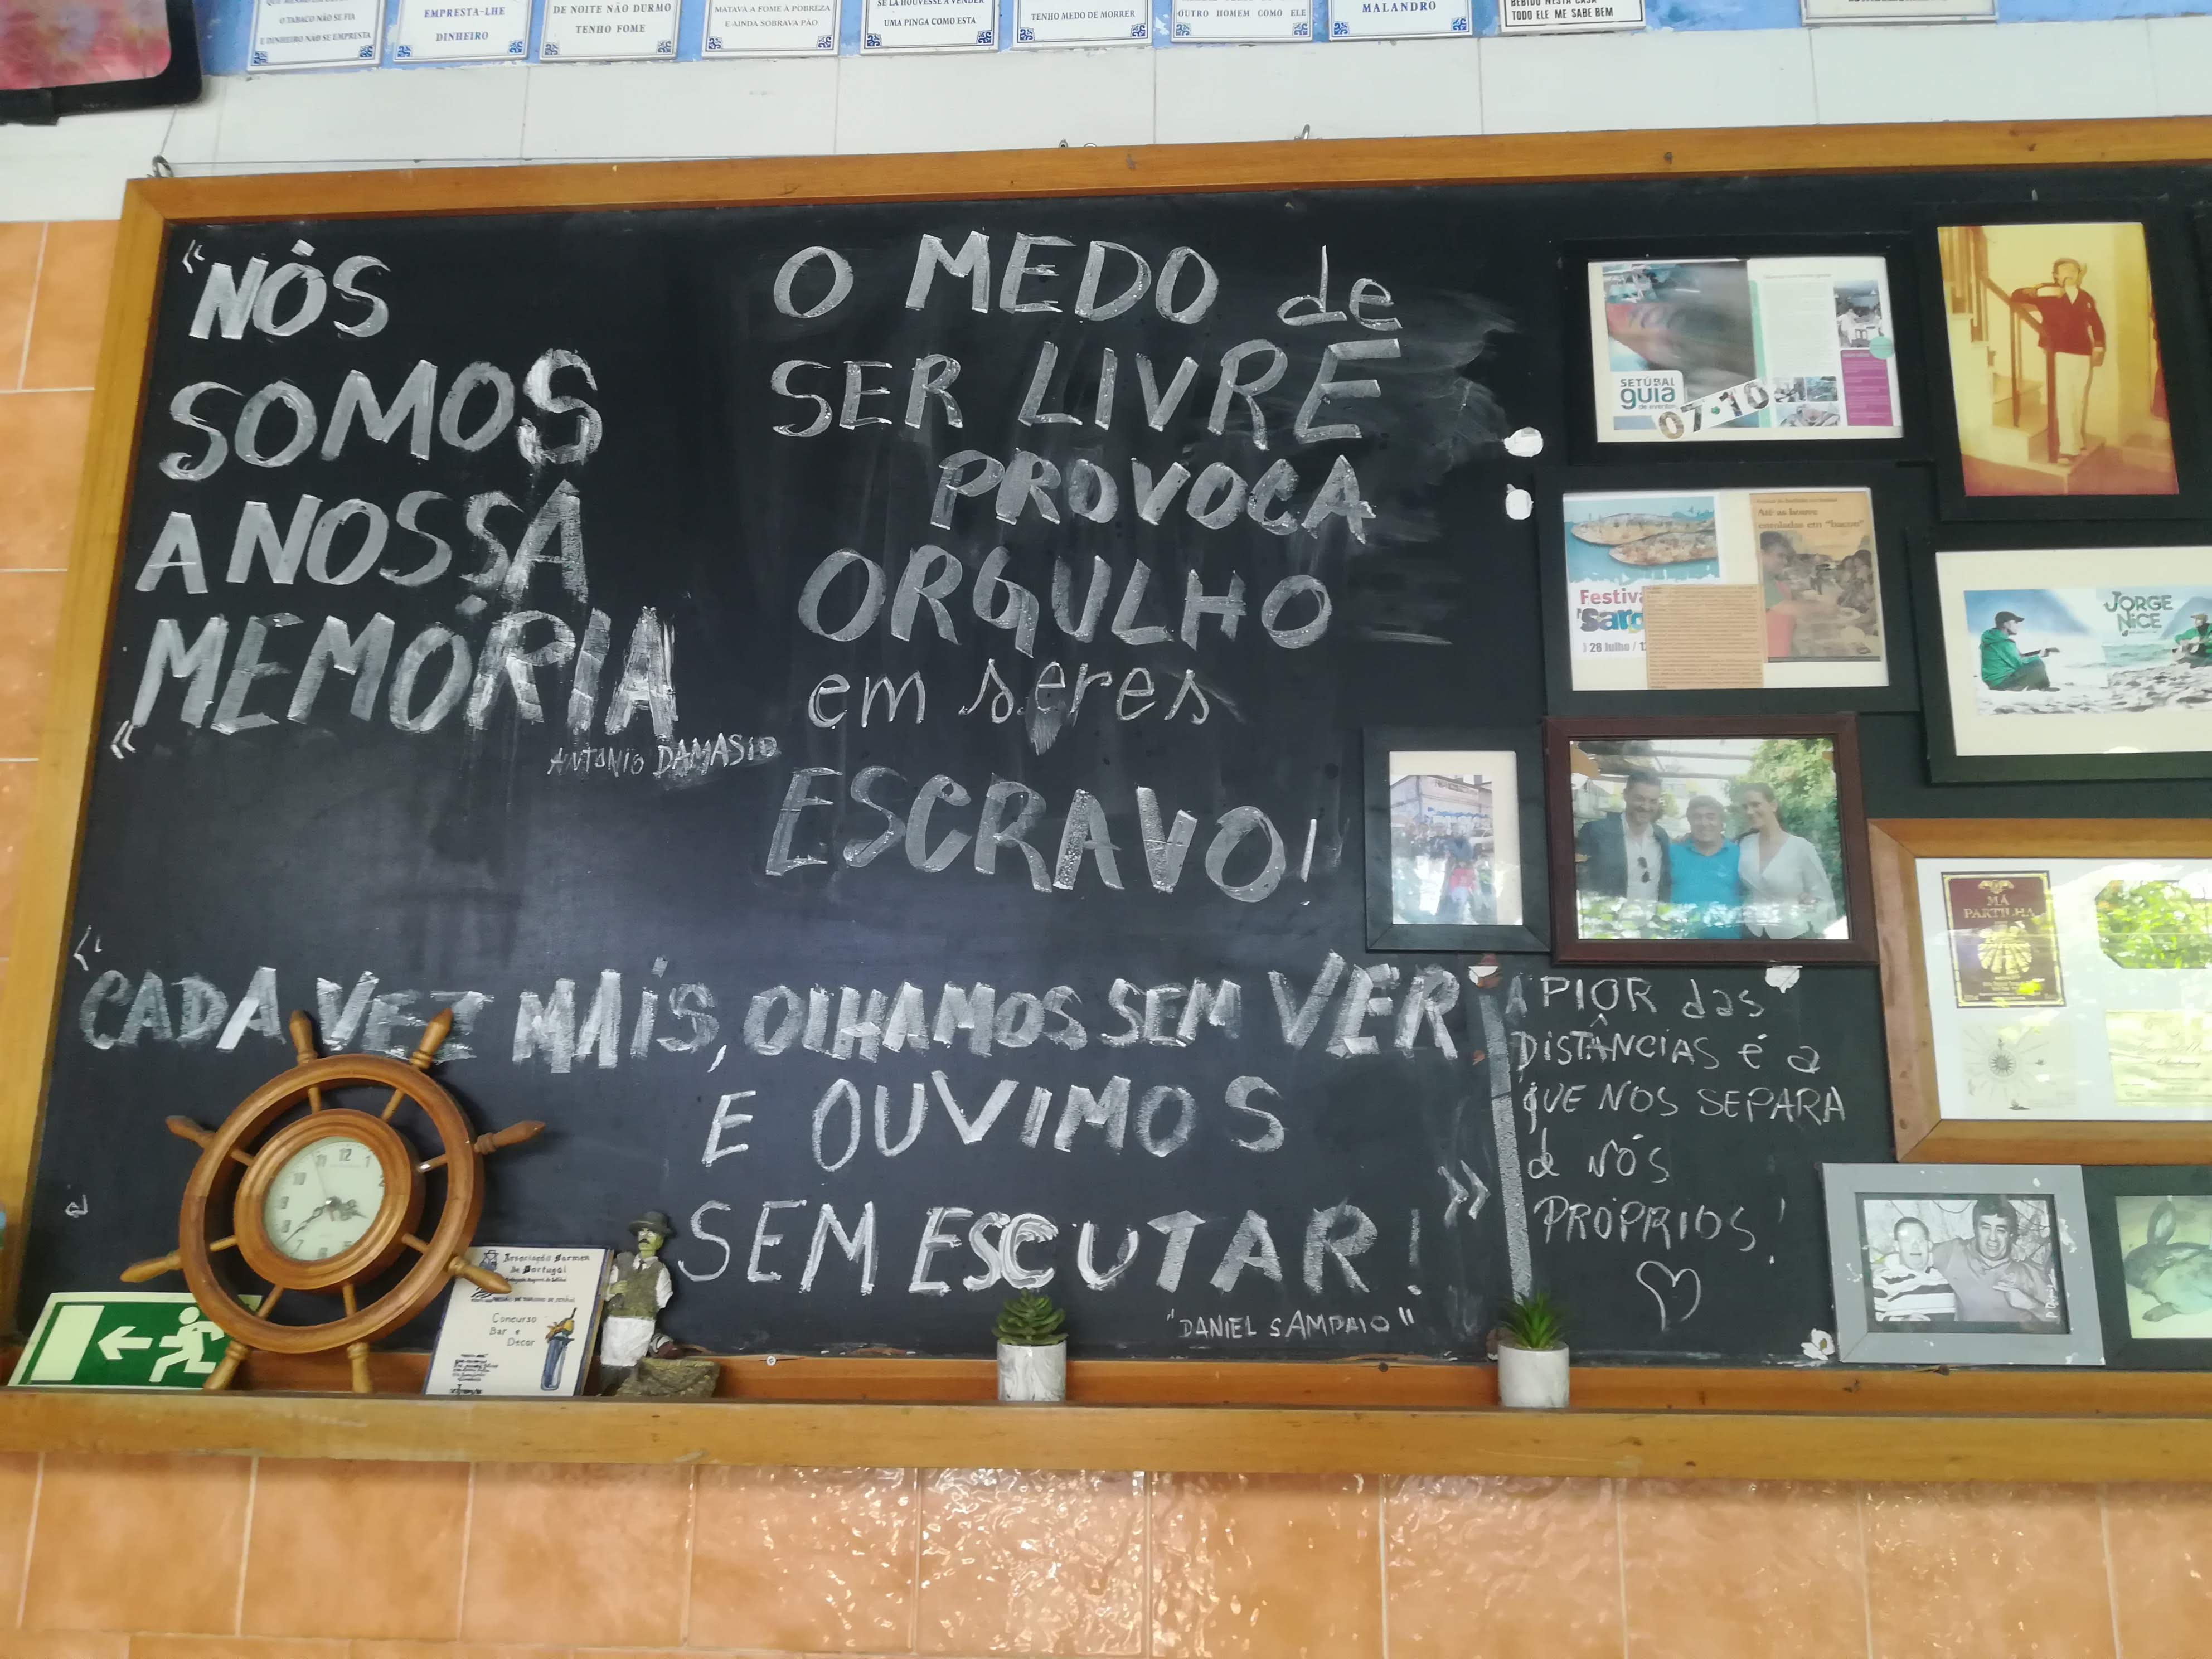 O TABACO NÃO SE FIA
E DINHEIRO NÃO SE EMPRESTA
EMPRESTA-LHE
DINHEIRO
DE NOITE NÃO DURMO
TENHO FOME
MATAVA A FOME À POBREZA
E AINDA SOBRAVA PÃO
SE LÁ HOUVESSE A VENDER
UMA PINGA COMO ESTA
TENHO MEDO DE MORRER
OUTRO HOMEM COMO ELE
MALANDRO
BEBIDO NESTA CASA
TODO ELE ME SABE BEM
"NÓS
SOMOS
A NOSSA
MEMÓRIA
"
ANTONIO DAMASIO
O MEDO de
SER LIVRE
PROVOCA
ORGULHO
em seres
ESCRAVO!
"CADA VEZ MAIS, OLHAMOS SEM VER
E OUVIMOS
SEM ESCUTAR! »
"DANIEL SAMPAIO"
A PIOR das
DISTÂNCIAS é a
QUE NOS SEPARA
d NÓS
PRÓPRIOS!
SETÚBAL
guia
de eventos
07•10
Festiva
28 Julho / 1
Até as houve
enroladas em "bacon"
JORGE
NICE
MÁ
PARTILHA
11 12 1
10 2
9
8
7 6 5
Associação Barmen
de Portugal
Concurso
Bar e
Decor